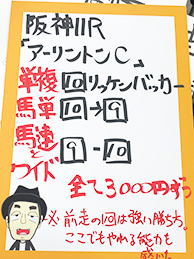 阪神11R
「アーリントンC」
単複 10 リッケンバッカー
馬単 10→9
馬連と
ワイド 9-10
全て3000円ずつ
※前走の10は強い勝ち。
ここでもやれる能力